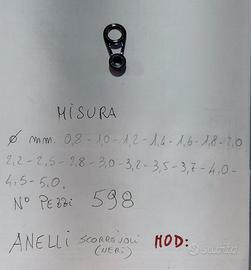 MISURA
Ø mm. 0,8 - 1,0 - 1,2 - 1,4 - 1,6 - 1,8 - 2,0
2,2 - 2,5 - 2,8 - 3,0 - 3,2 - 3,5 - 3,7 - 4,0 -
4,5 - 5,0.
N° PEZZI 598
ANELLI SCORREVOLI MOD:
(NERI)
Subito